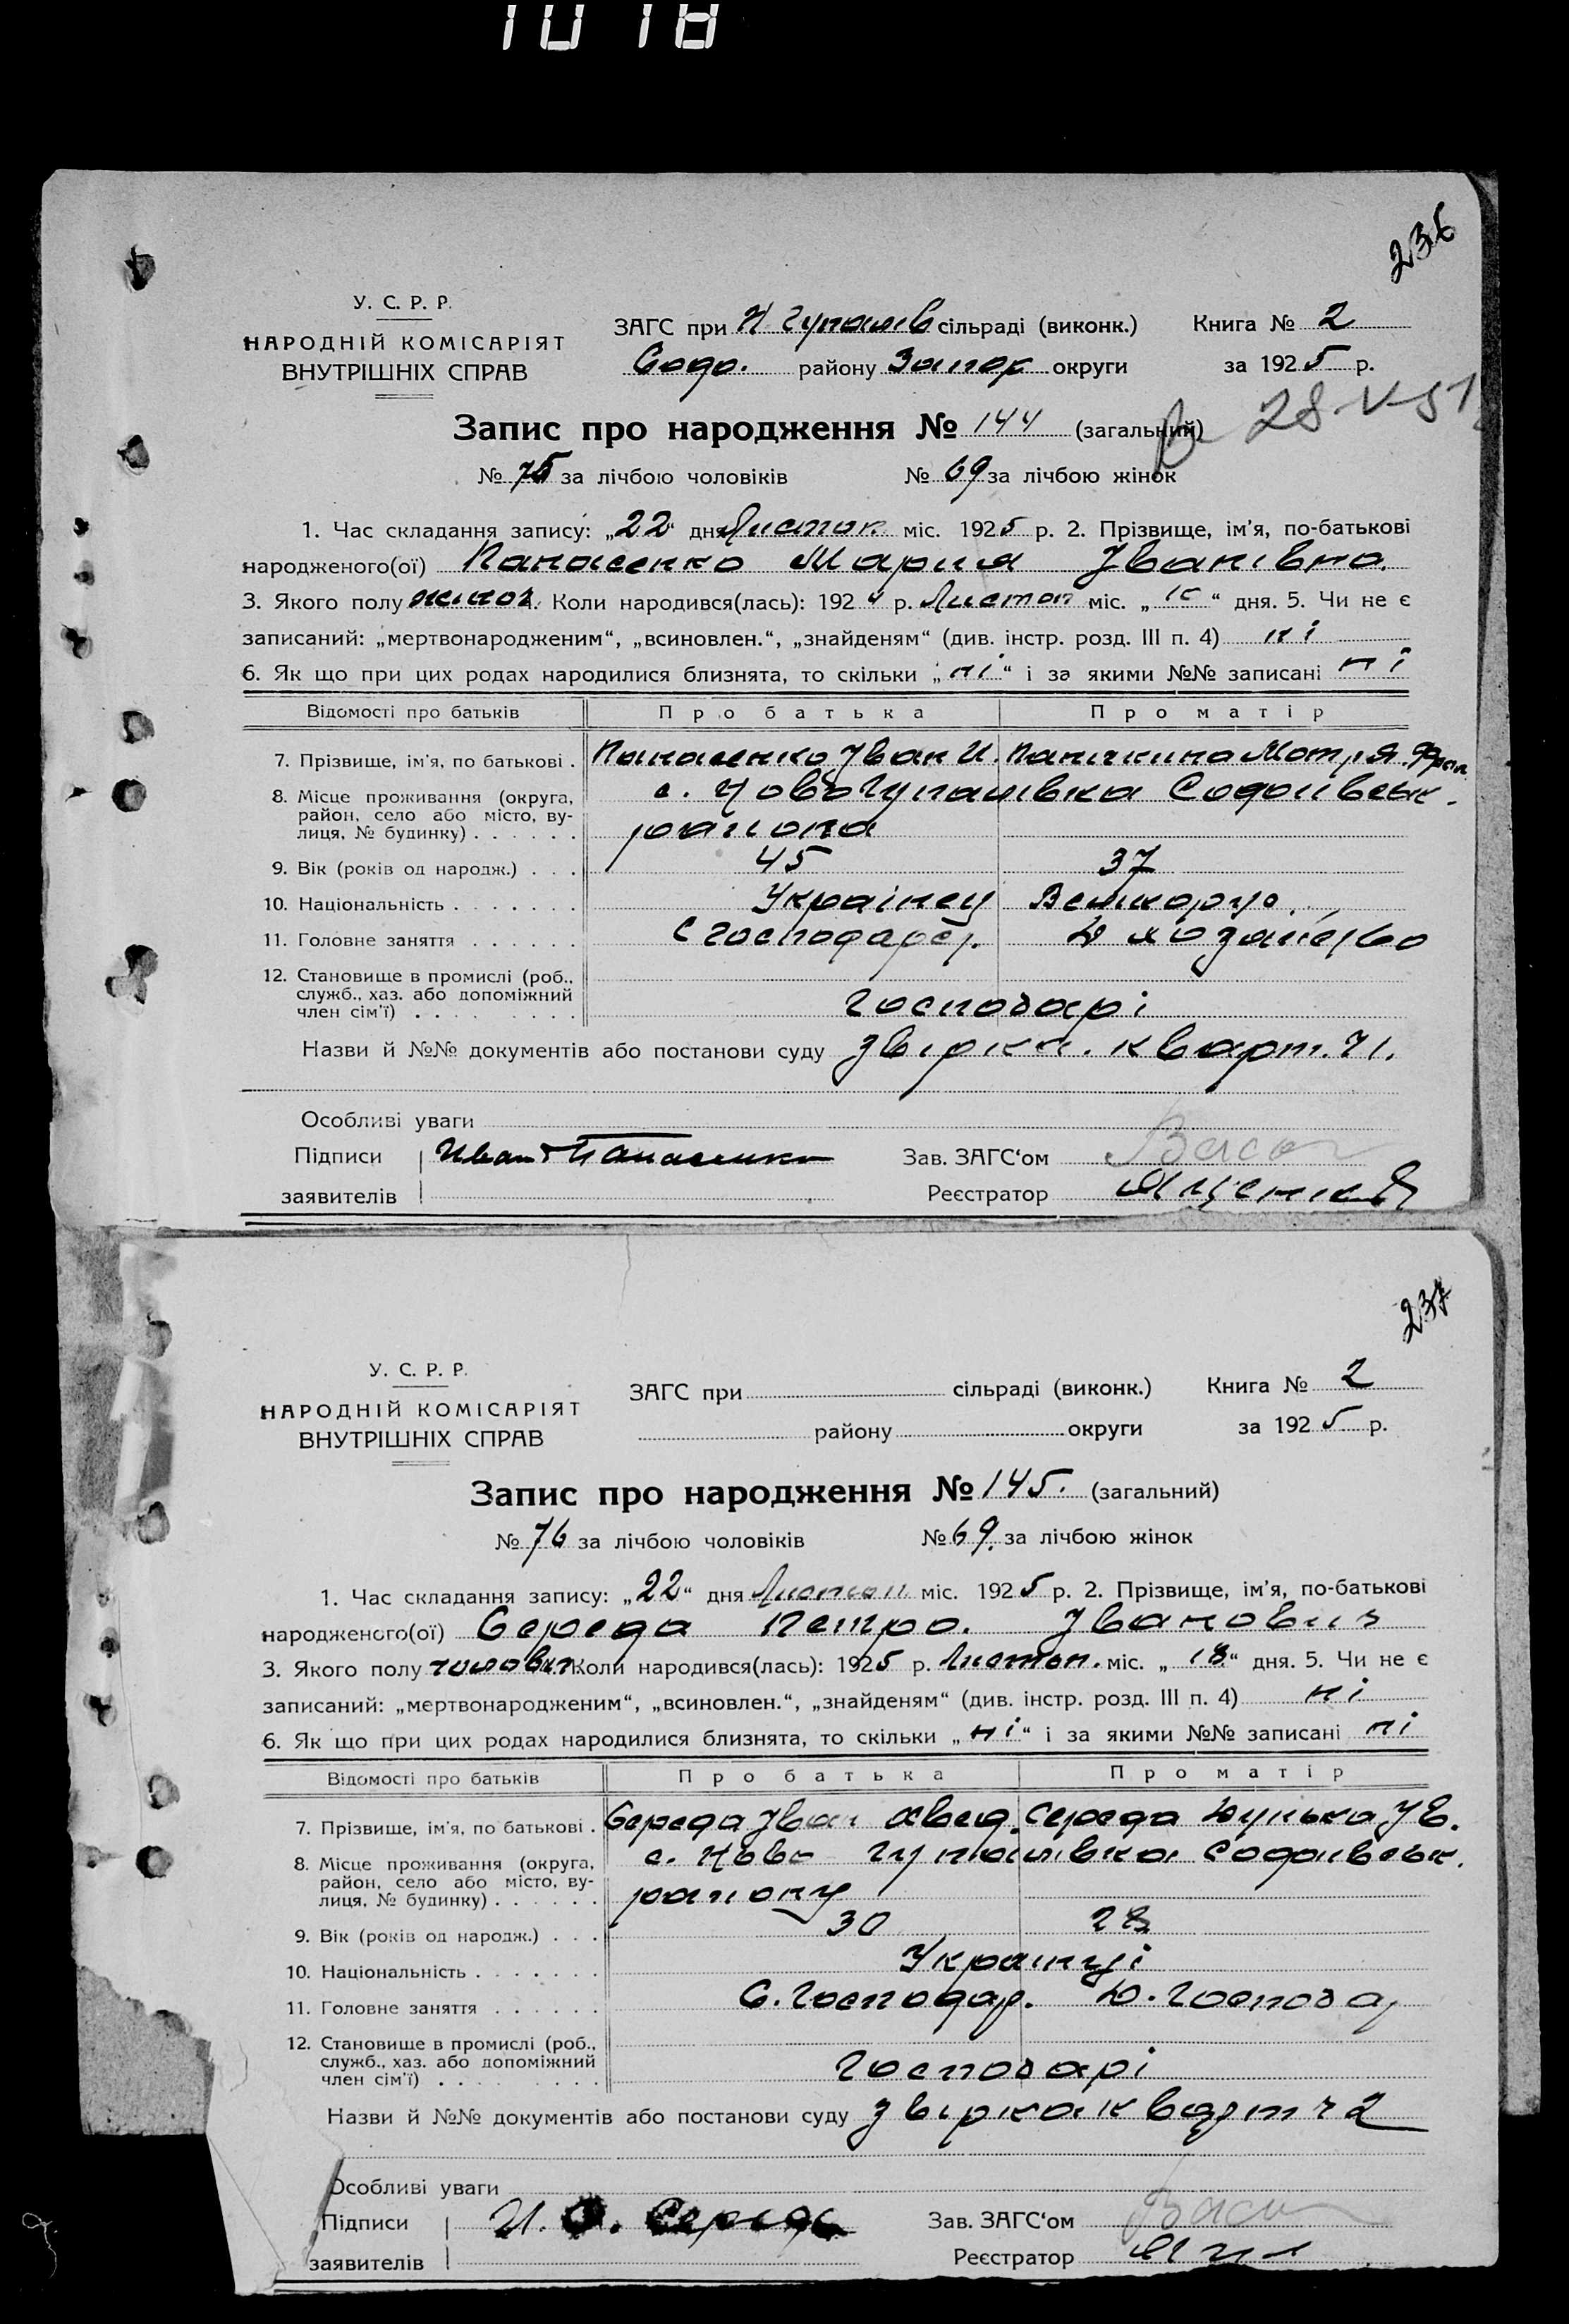 1018
236
У. С. Р. Р.
НАРОДНІЙ КОМІСАРІЯТ
ВНУТРІШНІХ СПРАВ
ЗАГС при Н Гупалів сільраді (виконк.) Книга № 2
Софо. району Запор округи за 1925 р.
28-V-51
Запис про народження № 144 (загальний)
№ 75 за лічбою чоловіків № 69 за лічбою жінок
1. Час складання запису: „22“ дня Листоп. міс. 1925 р. 2. Прізвище, ім’я, по-батькові
народженого(ої) Панасенко Мария Іванівна.
3. Якого полу жіноч. 4. Коли народився(лась): 192 р. Листоп міс. „ “ дня. 5. Чи не є
записаний: „мертвонародженим“, „всиновлен.“, „знайденям“ (див. інстр. розд. III п. 4) ні
6. Як що при цих родах народилися близнята, то скільки „ні“ і за якими №№ записані ні
Відомості про батьків Про батька Про матір
7. Прізвище, ім’я, по батькові . Панасенко Іван И. Мотря
8. Місце проживання (округа, с. НовоГупалівка Софоівськ.
район, село або місто, ву-
лиця, № будинку) . . . . . . района
9. Вік (років од народж.) . . . 45 37
10. Національність . . . . . . . Українец Великорус.
11. Головне заняття . . . . . . С господарст. Д хозяйство
12. Становище в промислі (роб.,
служб., хаз. або допоміжний
член сім’ї) . . . . . . . . . господарі
Назви й №№ документів або постанови суду звірка. кварт. 71.
Особливі уваги
Підписи Иван Панасенко Зав. ЗАГС‘ом
заявителів Реєстратор Яценко
237
У. С. Р. Р.
НАРОДНІЙ КОМІСАРІЯТ
ВНУТРІШНІХ СПРАВ
ЗАГС при сільраді (виконк.) Книга № 2
району округи за 1925 р.
Запис про народження № 145. (загальний)
№ 76 за лічбою чоловіків № 69. за лічбою жінок
1. Час складання запису: „22“ дня Листоп міс. 1925 р. 2. Прізвище, ім’я, по-батькові
народженого(ої) Середа Петро. Іванович
3. Якого полу чоловіч. Коли народився(лась): 1925 р. Листоп. міс. „18“ дня. 5. Чи не є
записаний: „мертвонародженим“, „всиновлен.“, „знайденям“ (див. інстр. розд. III п. 4) ні
6. Як що при цих родах народилися близнята, то скільки „ні“ і за якими №№ записані ні
Відомості про батьків Про батька Про матір
7. Прізвище, ім’я, по батькові . Середа Іван Хвед. Середа Дунька Ів.
8. Місце проживання (округа, с. Ново Гупалівка Софоівськ.
район, село або місто, ву-
лиця, № будинку) . . . . . . району
9. Вік (років од народж.) . . . 30 28
10. Національність . . . . . . . Українці
11. Головне заняття . . . . . . С. Господар. Д. Господар
12. Становище в промислі (роб.,
служб., хаз. або допоміжний
член сім’ї) . . . . . . . . . Господарі
Назви й №№ документів або постанови суду звірка кварт ч 2
Особливі уваги
Підписи И. Ф. Середа Зав. ЗАГС‘ом
заявителів Реєстратор Яцен